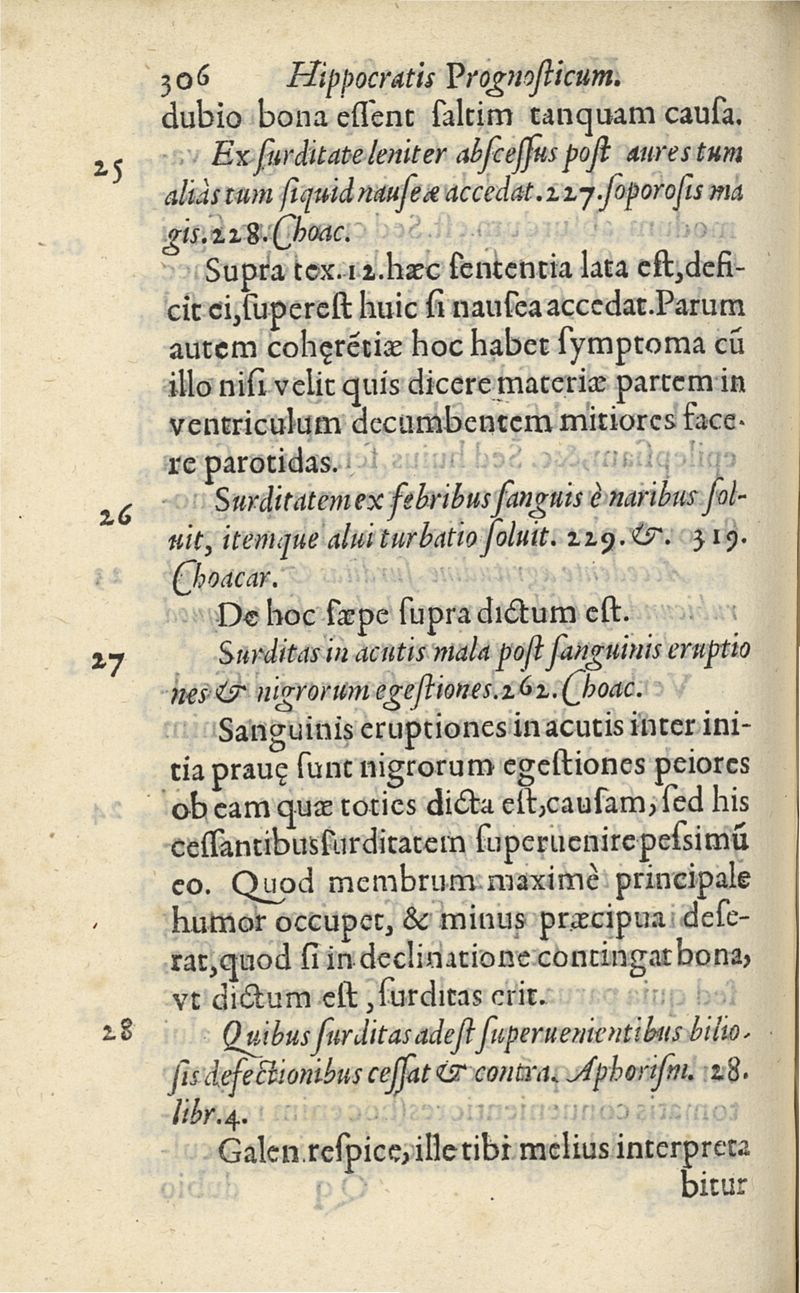 306 Hippocratis Prognosticum.
dubio bona essent saltim tanquam causa.
25 Ex surditate leniter abscessus post aures tum
aliàs tum siquid nauseæ accedat.227.soporosis ma
gis.228.Choac.
Supra tex.12.hæc sententia lata est,defi-
cit ei,superest huic si nausea accedat.Parum
autem cohęrẽtiæ hoc habet symptoma cũ
illo nisi velit quis dicere materiæ partem in
ventriculum decumbentem mitiores face-
re parotidas.
26 Surditatem ex febribus sanguis è naribus sol-
uit, itemque alui turbatio soluit. 229.&. 319.
Choacar.
De hoc sæpe supra dictum est.
27 Surditas in acutis mala post sanguinis eruptio
nes & nigrorum egestiones.262.Choac.
Sanguinis eruptiones in acutis inter ini-
tia prauę sunt nigrorum egestiones peiores
ob eam quæ toties dicta est,causam,sed his
cessantibus surditatem superuenire pessimũ
eo. Quod membrum maximè principale
humor occupet, & minus præcipua dese-
rat,quod si in declinatione contingat bona,
vt dictum est ,surditas erit.
28 Quibus surditas adest superuenientibus bilio-
sis defectionibus cessat & contra. Aphorism. 28.
libr.4.
Galen.respice,ille tibi melius interpreta
bitur